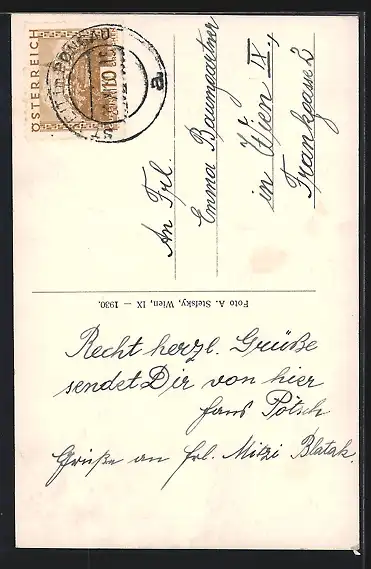 ÖSTERREICH
a
An Frl.
Emma Baumgartner
in Wien IX.,
Frankgasse 2
Foto A. Stefsky, Wien, IX — 1930.
Recht herzl. Grüße
sendet Dir von hier
Hans Pötsch
Grüße an Frl. Mitzi Blatak.